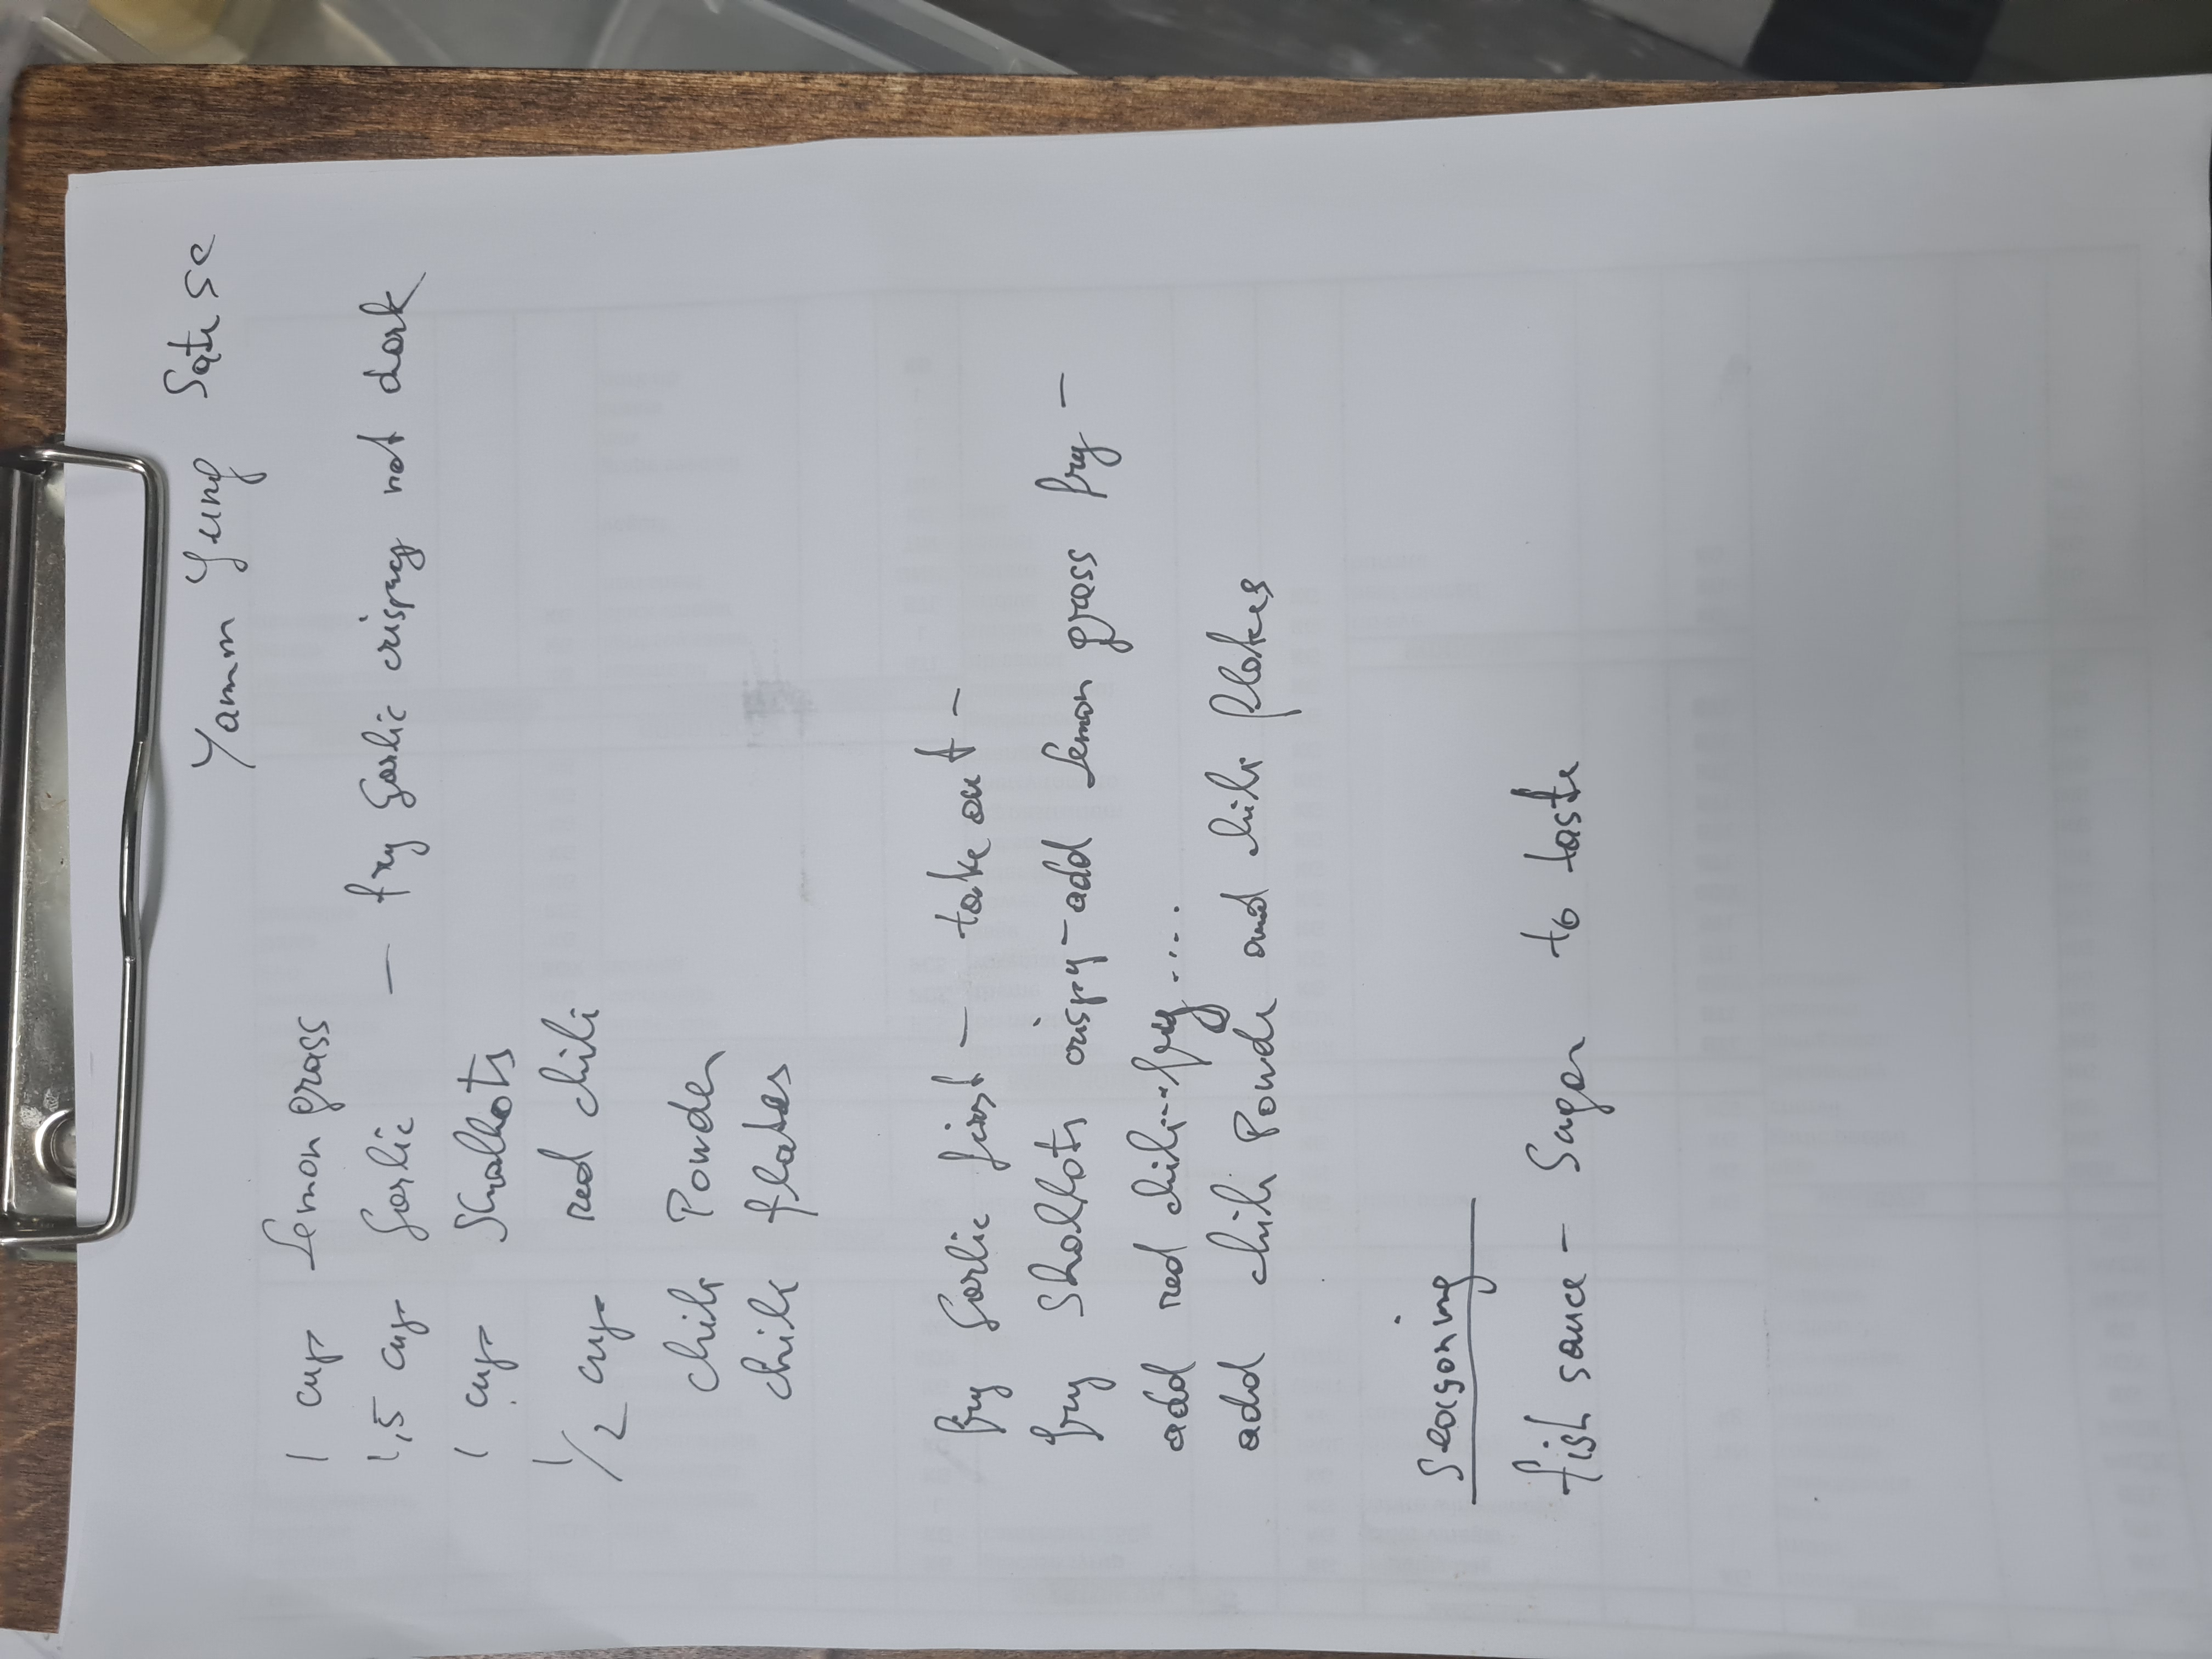 Yamm Yung Satuse
1 cup Lemon grass
1,5 cup Garlic — fry Garlic crispy not dark
1 cup Shallots
1/2 cup red chili
chili Powder
chili flakes
fry Garlic first — take out —
fry Shallots crispy - add Lemon grass fry —
add red chili--fry.....
add chili Powder and chili flakes
Seasoning
fish sauce - Sugar to taste